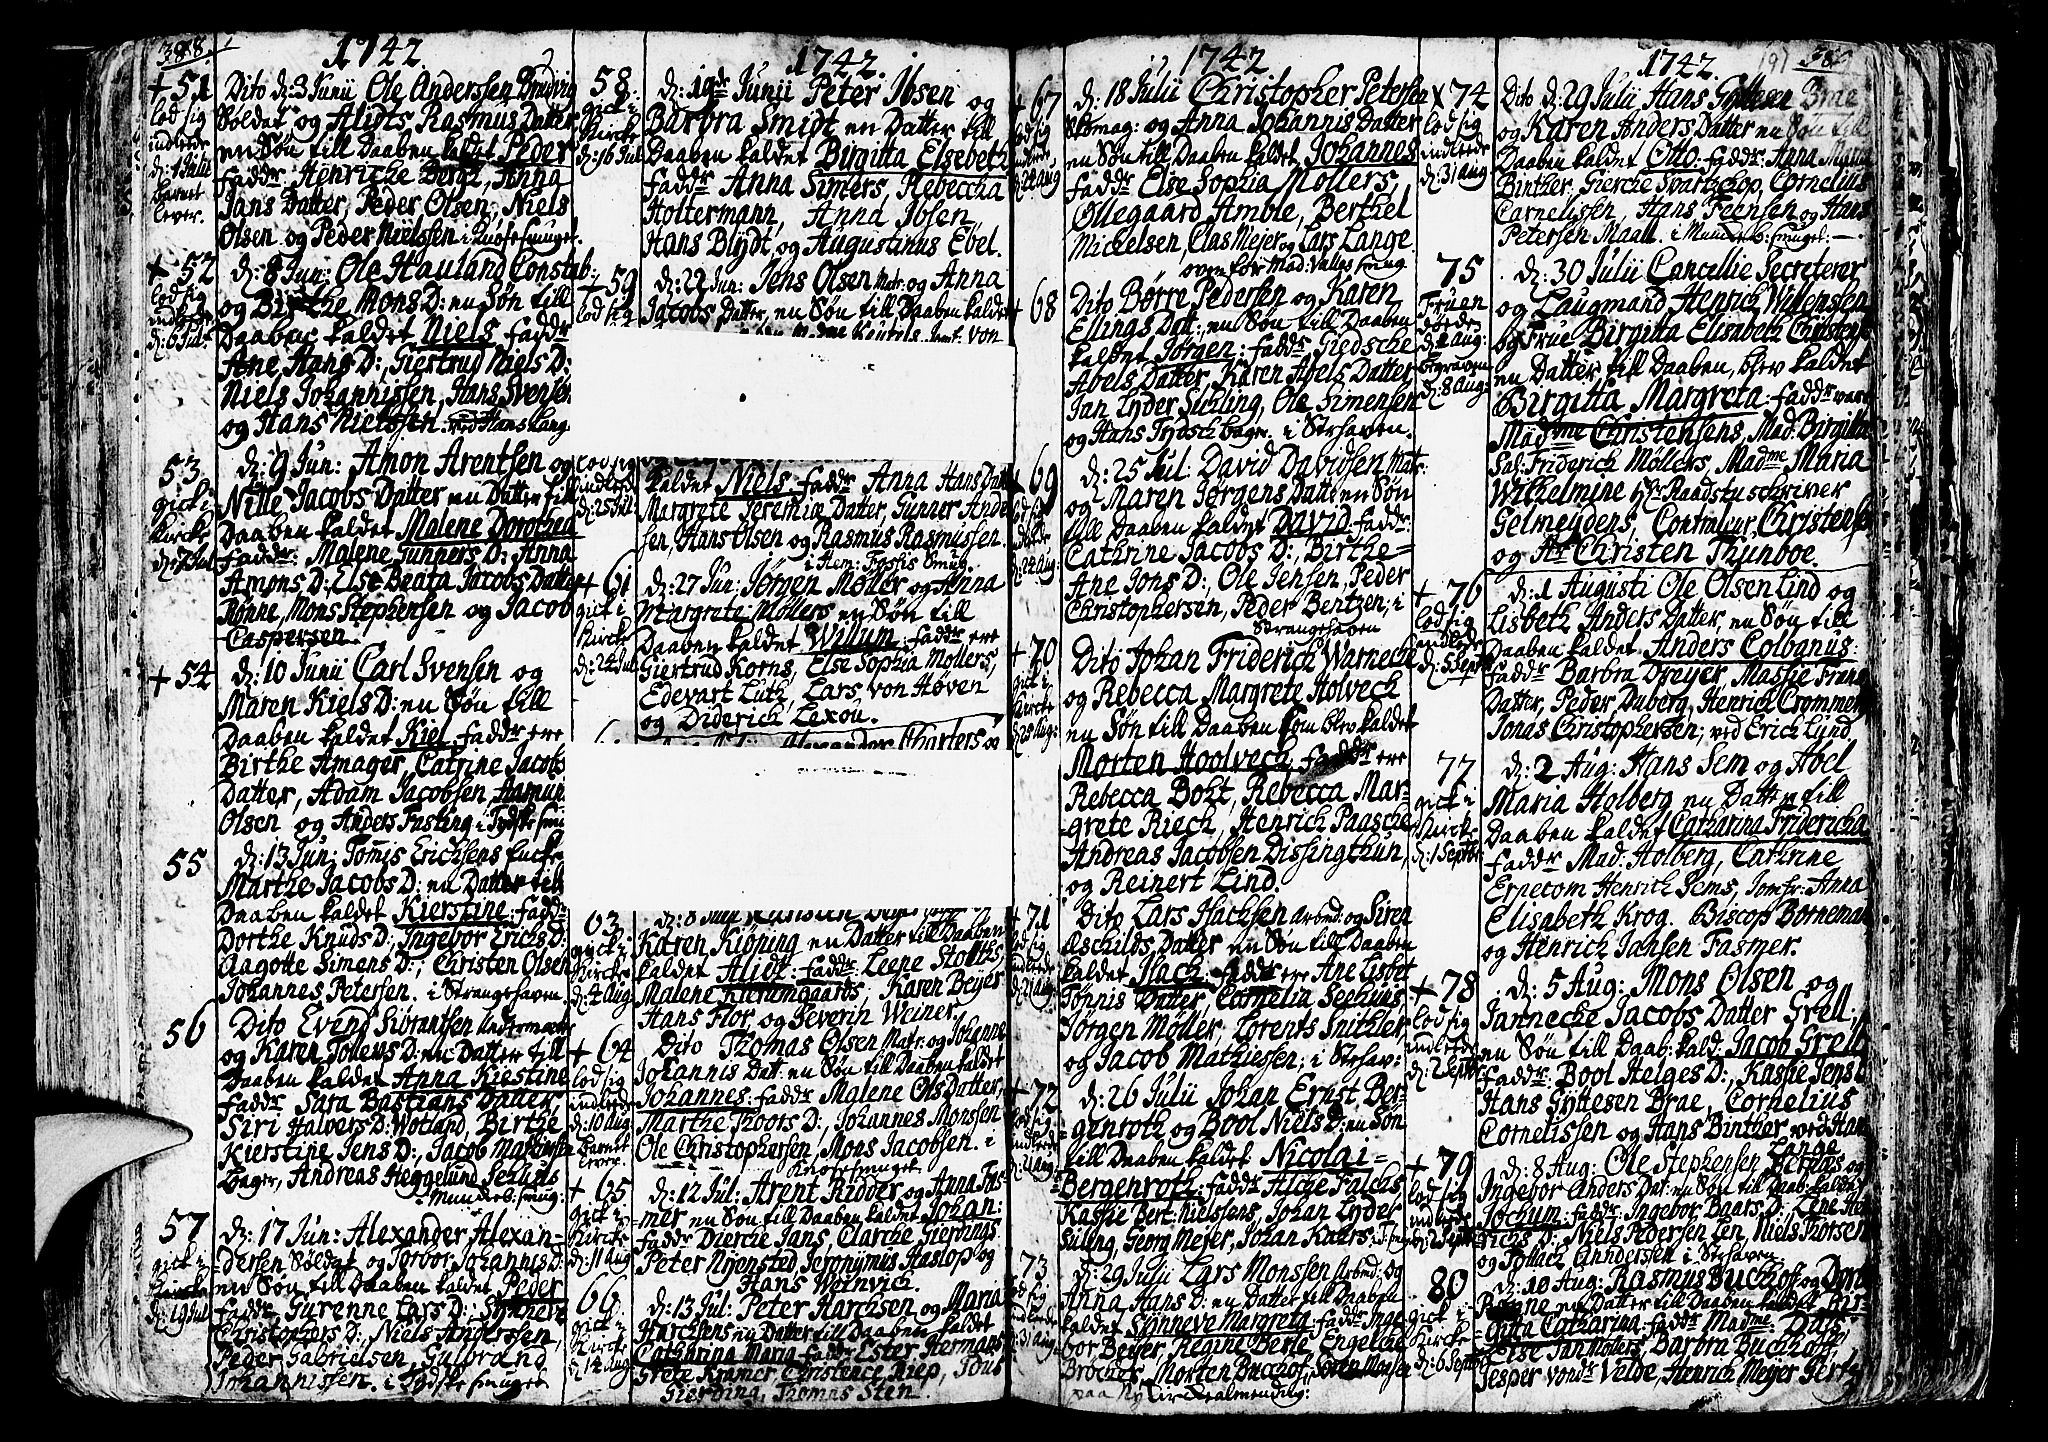 388.
1742.
+ 51
lod sig
indlede
d: 1 Julii
barnet
lever.
Dito d: 3 Junii Ole Anderssen Brudvig
Soldat og Alidts Rasmus Datter
en Søn till Daaben kaldet Peder
Faddr, Henricke Bergt, Anna
Jans Datter, Peder Olsen, Niels
Olsen og Peder Nielssen i Knøsesmuget.
+ 52
lod sig
indlede
d: 6 Jul:
d: 8 Jun: Ole Hauland Constab:
og Birthe Mons D: en Søn till
Daaben kaldet Niels. Faddr
Ane Hans D:, Giertrud Niels D:
Niels Johannissen, Hans Svensen
og Hans Nielssen. ved Hans Lang
53
gick i
Kircke
d: Jul
d: 9 Jun: Amon Arentsen og
Nille Jacobs Datter en Datter till
Daaben kaldet Malene Dorothea
Faddr: Malene Gunners D:, Anna
Amons D: Else Beata Jacobs Datter
Rønne, Mons Stephensen og Jacob
Caspersen.
+ 54
d: 10 Junii Carl Svensen og
Maren Kiels D: en Søn till
Daaben kaldet Kiel, Faddr ere
Birthe Amager, Catrine Jacobs
Datter, Adam Jacobsen,
Olsen og Anders Fasting i Tydske smu
55
d: 13 Jun: Tomis Erichsens Encke
Marthe Jacobs D: en Datter till
Daaben kaldet Kierstine: Faddr
Dorthe Knuds D:, Ingebor Erichs D:
Aagotte Simens D:, Christen Olsen
Johannes Petersen. i Strangehavен
56
Dito Evind Siorantsen
og Karen Tollevs D: en Datter till
Daaben kaldet Anna Kiestine
Faddr Sara Bastians Datter,
Siri Halvers D: Wotland, Birthe
Kierstine Jens D:, Jacob Mathissen
bager, Andreas Heggelund Sehuus
Mundeb: smug:
57
gick i
Kircke
d: 19 Jul
d: 17 Jun: Alexander Alexan-
dersen Soldat og Torbor Johannis D:
en Søn till Daaben kaldet Peder
Faddr Gurenne Lars D:, Synneve
Christophers D:, Niels Anderssen,
Peder Gabrielsen, Gulbrand
Johannissen. i Tydske smuget
1742.
58.
gick i
Kircke
d: 16 Jul
d: 19de Junii Peter Ibsen og
Barbra Smidt en Datter till
Daaben kaldet Birgitta Elsebeth
Faddr Anna Simers, Rebeccha
Holtermann, Anna Ibsen,
Hans Blydt, og Augustinus Ebel.
+ 59
lod sig
d: 22 Jun: Jens Olsen Matr: og Anna
Jacobs Datter, en Søn till Daaben kaldet
lod sig
indlede
d: 25 Jul:
kaldet Niels. Faddr Anna Hans Dat
Margrete Jeremiæ Datter, Gunner Ander
sen, Hans Olsen og Rasmus Rasmussen.
i Hem: Fossis Smug.
+ 61
gick i
Kircke
d: 24 Jul
d: 27 Jun: Jørgen Møller og Anna
Margrete Møllers en Søn till
Daaben kaldet Willum. Faddr ere
Giertrud Korns, Else Sophia Møllers,
Edevart Lutz, Lars von Høven
og Diderich Lexou.
Alexander Charters og
63
gick i
Kircke
d: 4 Aug
Karen Kiøping en Datter till Daaben
kaldet Alidt: Faddr Leene Stolths,
Malene Kierumgaards, Karen Beyer
Hans Flor, og Severin Weiner.
+ 64
lod sig
indlede
d: 10 Aug
barnet
lever.
Dito Thomas Olsen Matr: og Johanne
Johannis Dat: en Søn till Daaben kaldet
Johannes: Faddr Malene Ols Datter,
Marthe Thoors D:, Johannes Monssen
Ole Christophersen, Mons Jacobsen. i
Knøsesmuget
+ 65
gick i
Kircke
d: 11 Aug
d: 12 Jul: Arent Ridder og Anna Fas-
mer en Søn till Daaben kaldet Johan:
Faddr Diercke Jans, Clarcke Gierdings
Peter Nyensted Jeronymus Haslop og
Hans Weinvich.
66.
gick i
Kircke
d: 14 Aug
d: 13 Jul: Peter Harchsen og Maria
Harchsens en Datter till Daaben kaldet
Catharina Maria Faddr Ester Hermans
Grete Kramer, Christence Riep, Idus
Gierding, Thomas Sten.
1742
+ 67
lod sig
indlede
d: 24 Aug
d: 18 Julii Christopher Petersen
Skomag: og Anna Johannis Datter
en Søn till Daaben kaldet Johannes
Faddr Else Sophia Møllers,
Øllegaard Amble, Berthel
Mickelsen, Clas Mejer og Lars Lange
oven for Mad: Valles smug.
+ 68
Dito Børre Pedersen og Karen
Ellings Datt: en Søn till Daaben
kaldet Jørgen: Faddr Giedsche
Abels Datter, Karen Abels Datter
Jan Lyder Suiling, Ole Simensen
og Hans Tydsch bager. i Strhaven.
+ 69
lod sig
indlede
d: 24 Aug:
d: 25 Jul: David Davidsen Matr:
og Maren Jørgens Datt en Søn
till Daaben kaldet David. Faddr:
Cathrine Jacobs D:, Birthe
Ane Jons D:, Ole Jensen, Peder
Christophersen, Peder Bentzen; i
Strangehaven
+ 70
gick i
Kircke
d: 28 Aug:
Dito Johan Friderich Warneck
og Rebecca Margrete Holveck
en Søn till Daaben som blev kaldet
Morten Hoolveck, Faddr ere
Rebecca Boht, Rebecca Mar-
grete Riech, Henrich Paasche
Andreas Jacobsen Dissingthun,
og Reinert Lind.
+ 71
lod sig
indlede
d: 21 Aug
Dito Lars Isachsen Arbmd: og Siren
Eschilds Datter en Søn till Daaben
kaldet Isach Faddr ere Ane Lisbet
Tønnis Datter, Cornelia Seehuus
Jørgen Møller, Lorents Snithler
og Jacob Mathiessen; i Strhav:
+ 72
lod sig
indlede
d: 21 Aug
d: 26 Julii Johan Ernst Ber-
genroth og Bool Niels D: en Søn
till Daaben kaldet Nicolai
Bergenroth: Faddr Alche Falchs,
Kassie Bert: Nielssens, Johan Lyder
Suling, Georg Mejer, Johan Kahrs.
73
lod sig
indlede
d: 31 Aug
d: 29 Julii Lars Monssen Arbmd: og
Anna Hans D: en Datter till Daaben
kaldet Synneve Margreta: Faddr Inge
bor Beyer, Regine Berle, Engelche
Brochet, Morten Buchhof Søren Monsen
paa Nykircke almending:
1742.
191
x 74
lod sig
indlede
d: 31 Aug
Dito d: 29 Julii Hans Gyttesen Brae
og Karen Anders Datter en Søn till
Daaben kaldet Otto. Faddr: Anna Maria
Binther, Giercke Svartzkop, Cornelius
Cornelissen, Hans Feensen og Hans
Petersen Maall. i Mundeb: smuget: —
75
Fruen
døede
d: 1 Aug:
begraven
d: 8 Aug:
d: 30 Julii Cancellie Secreterer
og Laugmand Henrich Willemssen
og Frue Birgitta Elisabeth Christens
en Datter, till Daaben, blev kaldet
Birgitta Margreta. Faddr vare
Madme Christensens, Mad: Birgitta
Sal: Friderich Møllers, Madme Maria
Wilhelmine Hr Raadstuschriver
Gelmeydens, Contraleur Christens
og Hr Christen Thynboe.
+ 76
lod sig
indlede
d: 5 Septr
d: 1 Augusti Ole Olsen Lind og
Lisbeth Anders Datter, en Søn till
Daaben kaldet Anders Colbanus:
Faddr Barbra Dreyer, Massie Frans
Datter, Peder Duberg, Henrich Crommen
Jonas Christophersen; ved Erich Lund.
77
gick i
Kircke
d: 1 Septbr
d: 2 Aug: Hans Sem og Abel
Maria Holberg en Datter till
Daaben kaldet Catharina Fridericha
Faddr Mad: Holberg, Cathrine
Erpecom Henrich Sems, Jomfr: Anna
Elisabeth Krog. Biscop Borneman
og Henrich Jansen Fasmer.
+ 78
lod sig
indlede
d: 2 Septbr
d: 5 Aug: Mons Olsen og
Jannecke Jacobs Datter Grell,
en Søn till Daab: kald: Jacob Grell
Faddr: Bool Helges D:, Kassie Jens
Hans Gyttesen Brae, Cornelius
Cornelissen og Hans Binther ved Han
Lange
+ 79
lod sig
indlede
d: 2 Septbr
d: 8 Aug: Ole Stephensen Bernes og
Ingebor Anders Dat: en Søn till Daab: kaldet
Jochum: Faddr: Ingebor Baars D: Lene
richs D: Niels Pedersen Len, Niels Thorsen
og Pollach Anndersen i Strhaven
80
gick i
Kircke
d: 6 Septbr
d: 10 Aug: Rasmus Buchhof og Dort
Rønne en Datter till Daaben kaldet Bir-
gitta Catharina: Faddr Madme Dass,
Else Jan Møllers, Barbra Buchhof,
Jesper vondr Velde, Henrich Mejer Gerh